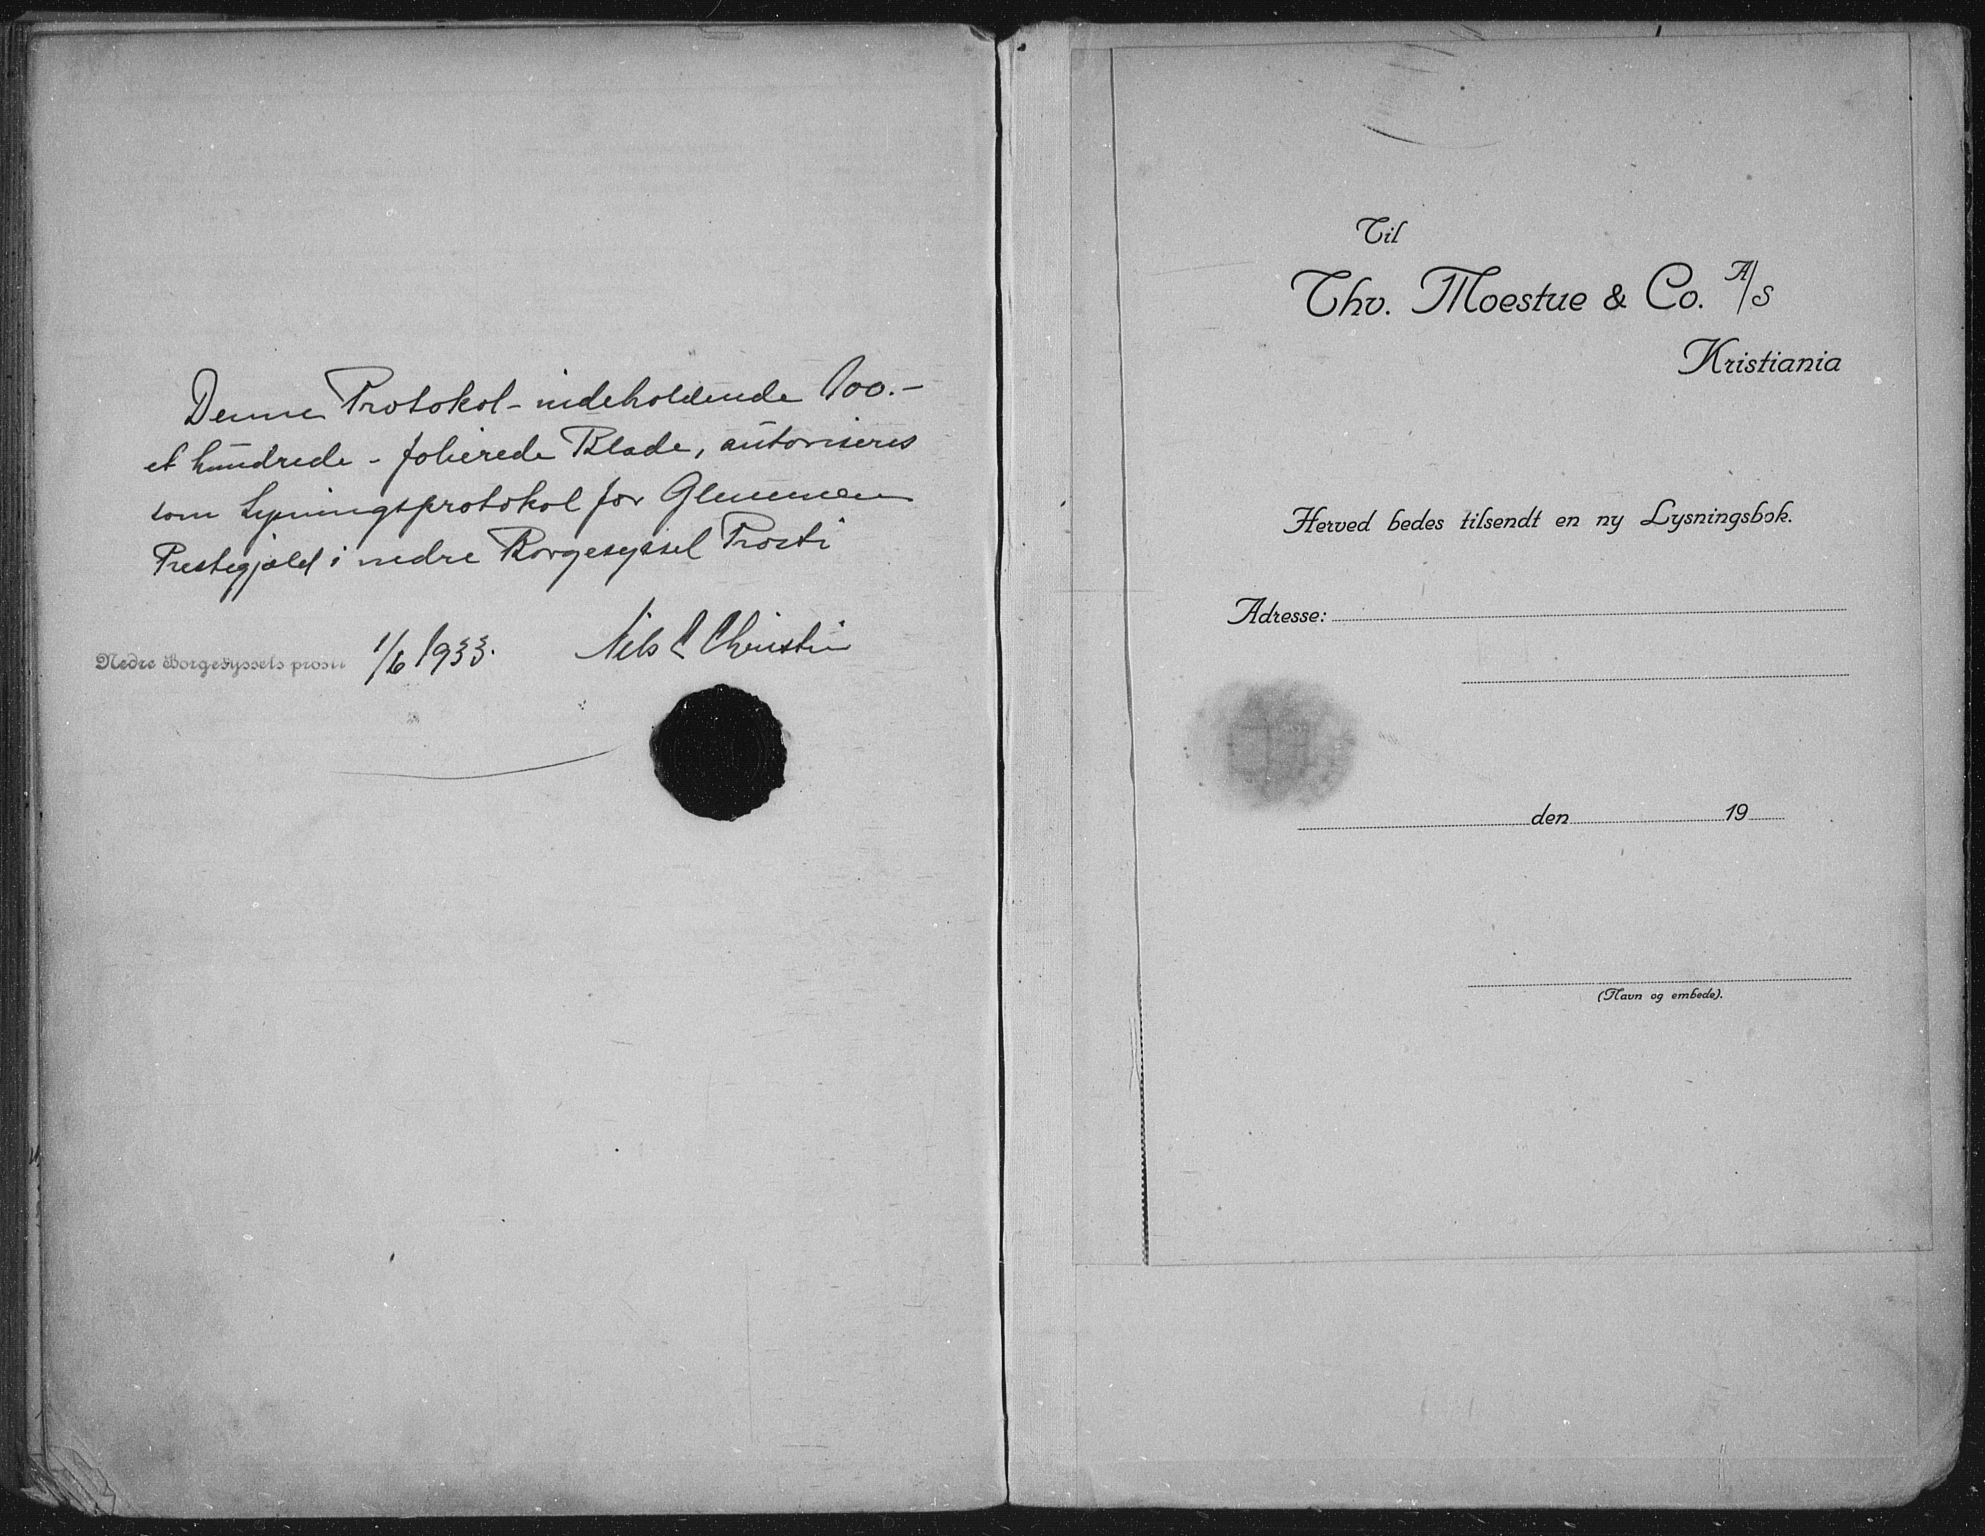 Denne Protokol - indeholdende 100.-
et hundrede - folierede Blade, autoriseres
som Lysningsprotokol for Glemmen
Prestegjæld i nedre Borgesyssel Prosti
Nedre Borgesyssels prosti 1/6 1933.
Nils C Christie
Til
Thv. Moestue & Co. A/S
Kristiania
Herved bedes tilsendt en ny Lysningsbok.
Adresse:
den 19
(Navn og embede).